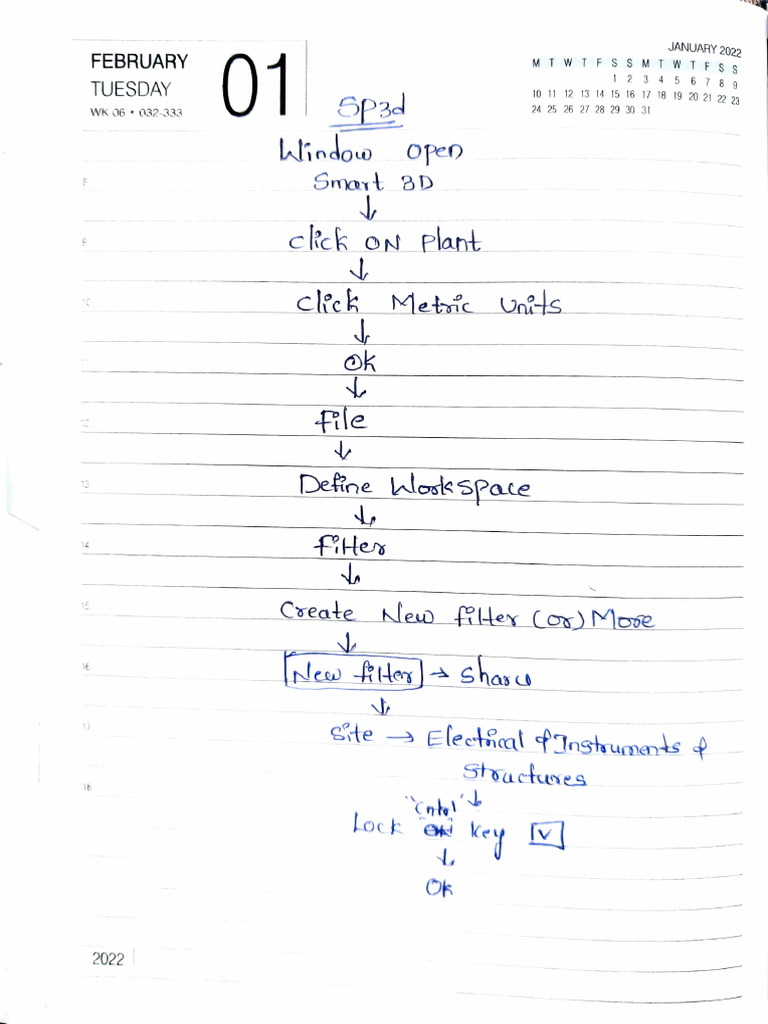 FEBRUARY
TUESDAY
WK 06 • 032-333
01
JANUARY 2022
M T W T F S S M T W T F S S
1 2 3 4 5 6 7 8 9
10 11 12 13 14 15 16 17 18 19 20 21 22 23
24 25 26 27 28 29 30 31
SP3d
Window open
8
Smart 3D
↓
9
Click ON Plant
↓
10
Click Metric Units
↓
11
OK
↓
12
File
↓
13
Define Workspace
↓
14
Filter
↓
15
Create New filter (or) More
↓
16
New filter → Share
↓
17
Site → Electrical & Instruments &
Structures
18
"Cntrl" ↓
Lock key v
↓
OK
2022